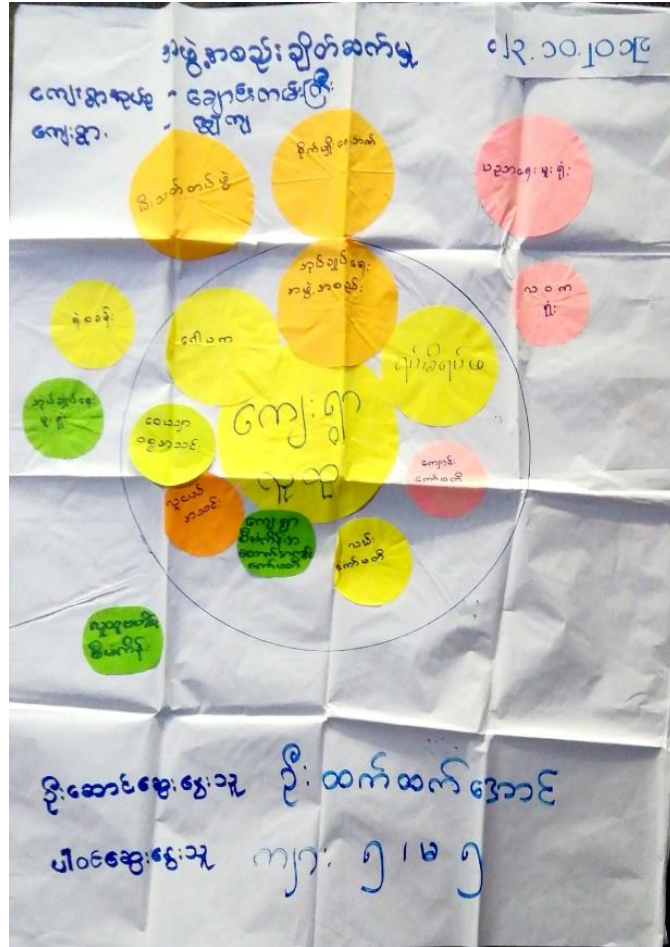 အဖွဲ့အစည်းချိတ်ဆက်မှု
ကျေးရွာအုပ်စု - ချောင်းတမ်းကြီး
ကျေးရွာ -
မီးသတ်တပ်ဖွဲ့
စိုက်ပျိုးရေးဘဏ်
ပညာရေးမှူးရုံး
အုပ်ချုပ်ရေး
အဖွဲ့အစည်း
လဝက
ရုံး
ရဲစခန်း
ဂေါပက
ရပ်မိရပ်ဖ
အုပ်ချုပ်ရေး
မှူးရုံး
ဝေယျာ
ဝစ္စအသင်း
ကျေးရွာ
လူထု
ကျောင်း
ကော်မတီ
လူငယ်
အသင်း
ကျေးရွာ
စီမံကိန်းအ
ထောက်အကူပြု
ကော်မတီ
လမ်း
ကော်မတီ
လူထုဗဟိုပြု
စီမံကိန်း
ဦးဆောင်ဆွေးနွေးသူ ဦးထက်ထက်အောင်
ပါဝင်ဆွေးနွေးသူ ကျား ၅၊ မ ၅